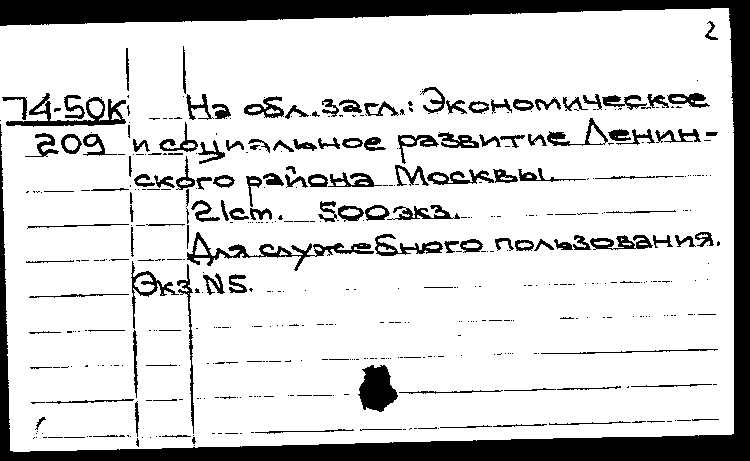 2
74-50К На обл. загл.: Экономическое
209 и социальное развитие Ленин-
ского района Москвы.
21 cm. 500 экз.
Для служебного пользования.
Экз. N5.